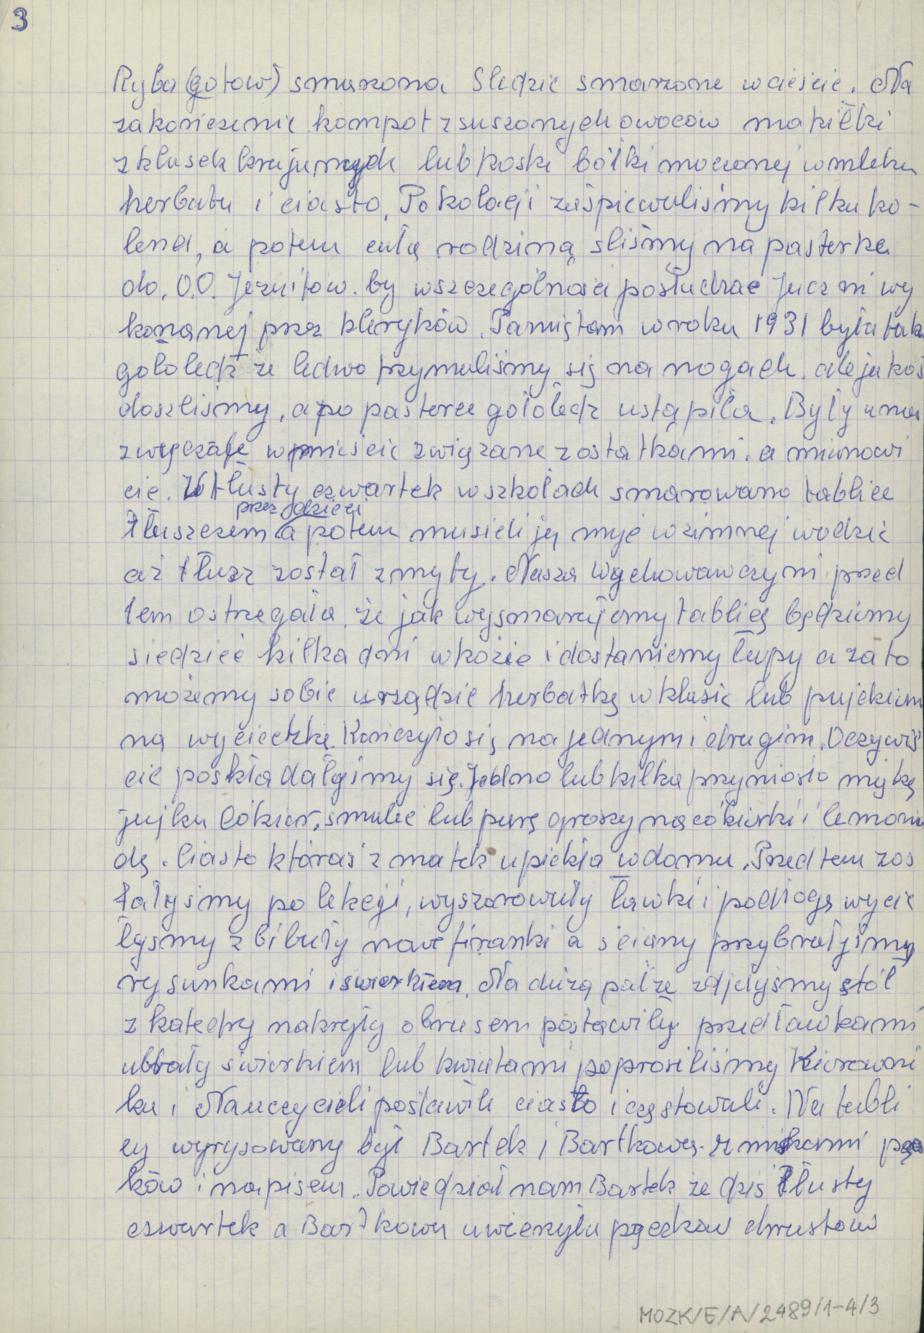 3
Ryba (gotow) smarzona Śledzie smarzone w cieście. Na
zakończenie kompot z suszonych owoców makiełki
z klusek krajanych lub kostki bólki moczonej w mleku
herbata i ciasto. Po kolacji zaśpiewaliśmy kilka ko-
lend, a potem całą rodziną śliśmy na pasterke
do. O.O. Jezuitow. by wszczególności posłuchać Juczni wy
konanej prez kleryków. Pamiętam w roku 1931 była tak
gołoledź że ledwo trzymaliśmy się na nogach. ale jakoś
doszliśmy, a po pasterce gołoledz ustąpiła. Były u nas
zwyczaje w mieście związane z ostatkami. a mianowi
cie. W tłusty czwartek w szkołach smarowano tablice
przez dzieci
tłuszczem a potem musieli ją myć w zimnej wodzie
aż tłuszz został zmyty. Nasza Wychowawczyni przed
tem ostrzegała, że jak wysmarujemy tablicę będziemy
siedzieć kilka dni w kozie i dostaniemy łapy a za to
możemy sobie urządzić herbatkę w klasie lub pujdziem
na wycieczkę. Kończyło się na jednym i drugim. Oczywiś
cie poskładałyśmy się. Jedno lub kilka przyniosło mąkę
jajka cókier, smalec lub parę groszy na cókierki i lemonia
dę. Ciasto któraś z matek upiekła w domu. Przedtem zos
tałyśmy po lekcji, wyszorowały ławki i podłogę wycie
łyśmy z bibuły nowe firanki a ściany przybrałyśmy
rysunkami i swierkiem. Na dużą pałze zdjęłyśmy stół
z katedry nakryły obrusem postawiły przed ławkami
ubrały świerkiem lub kwiatami poprosiliśmy Kierowni
ka i Nauczycieli postawili ciasto i częstowali. Na tabli
cy wyrysowany był Bartek i Bartkowa. z miskami pą
ków i napisem. Powiedział nam Bartek że dziś tłusty
czwartek a Bartkowa uwierzyła pączków chrustów
MOZK/E/A/2489/1-4/3